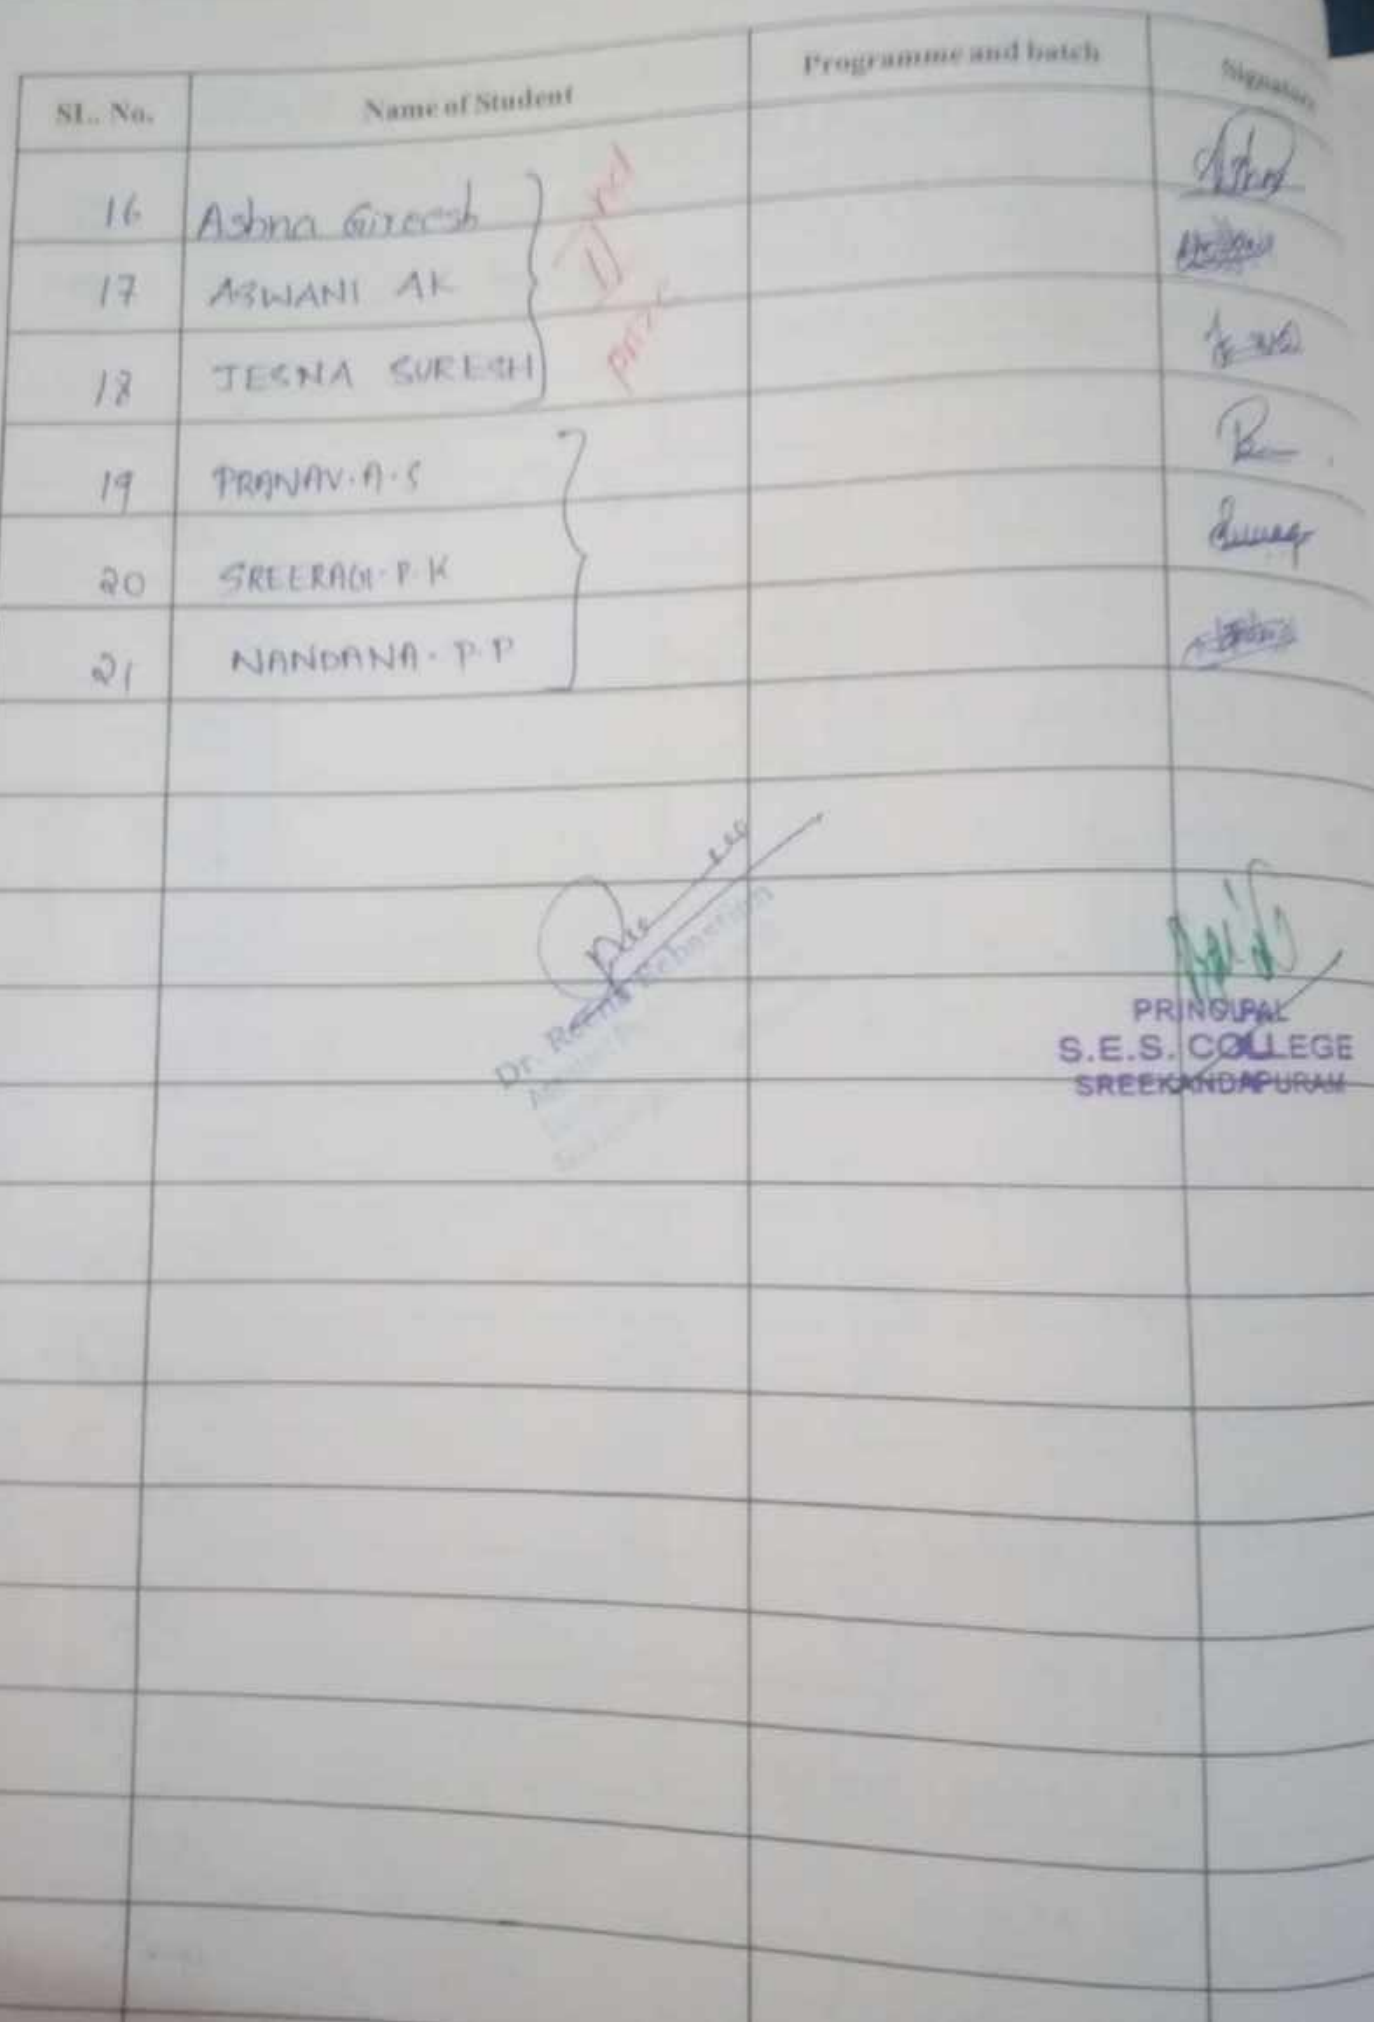 SL. No. Name of Student Programme and batch Signature
16 Ashna Gireesh
17 ASWANI AK
18 JESNA SURESH
II nd
prize
19 PRANAV. A. S
20 SREERAG. P. K
21 NANDANA. P. P
Dr. Reena Sebastian
PRINCIPAL
S.E.S. COLLEGE
SREEKANDAPURAM